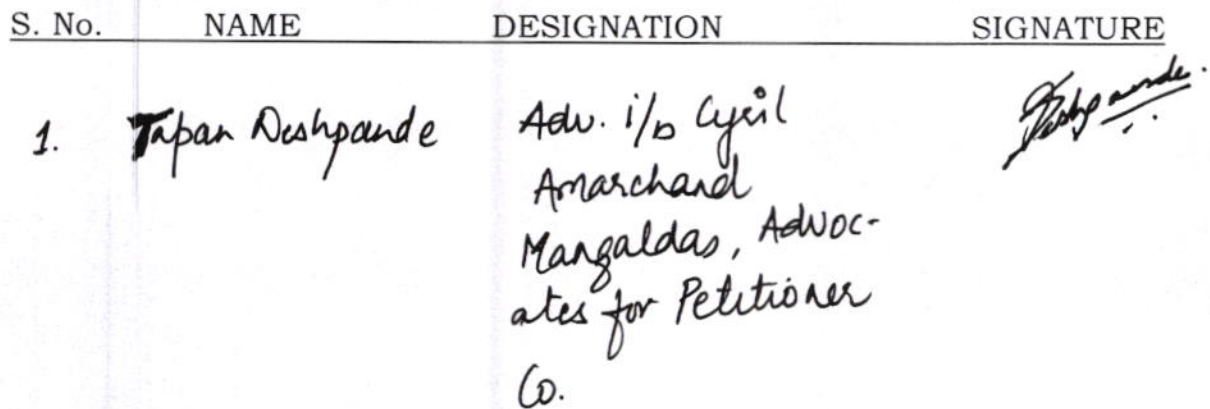 S. No. NAME DESIGNATION SIGNATURE
1. Tapan Deshpande Adv. i/b Cyril Deshpande.
Amarchand
Mangaldas, Advoc-
ates for Petitioner
Co.